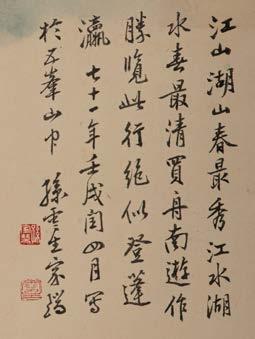 江山湖山春最秀江水湖
水春最清買舟南遊作
勝覽此行絶似登蓬
瀛 七十一年壬戌閏四月寫
於五峯山中 孫雲生家瑞